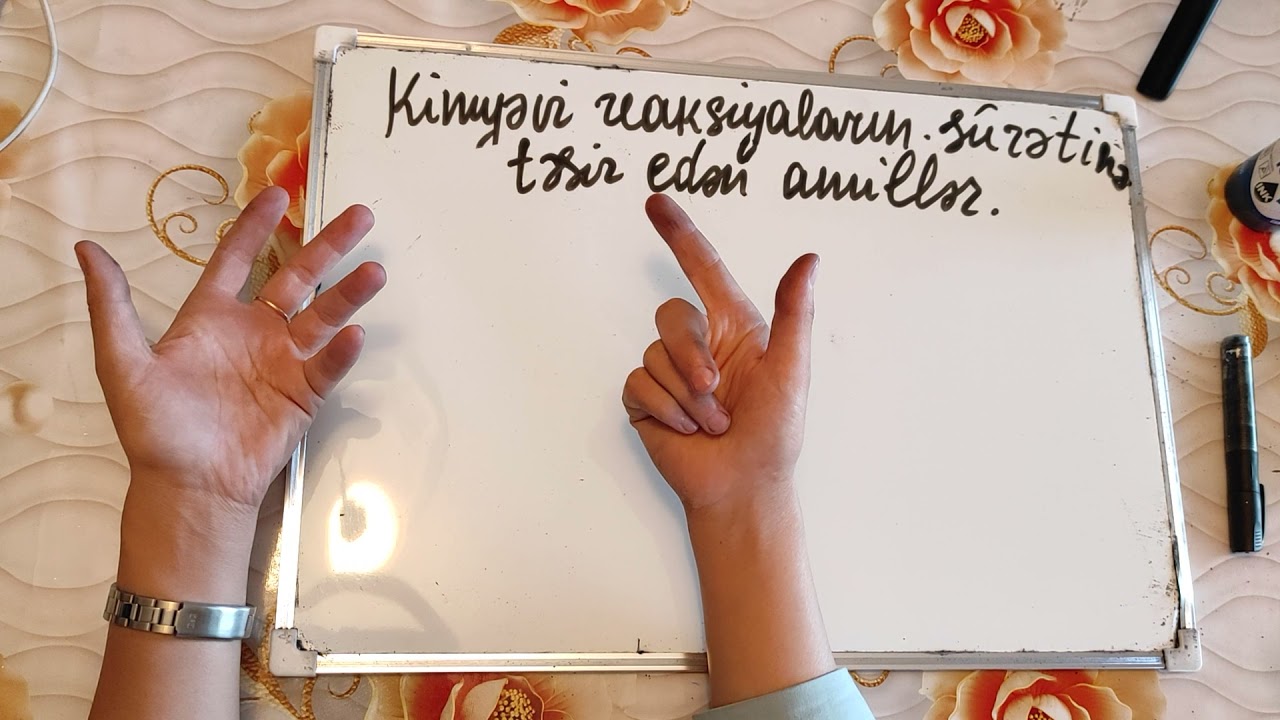 Kimyəvi reaksiyaların sürətinə
təsir edən amillər.